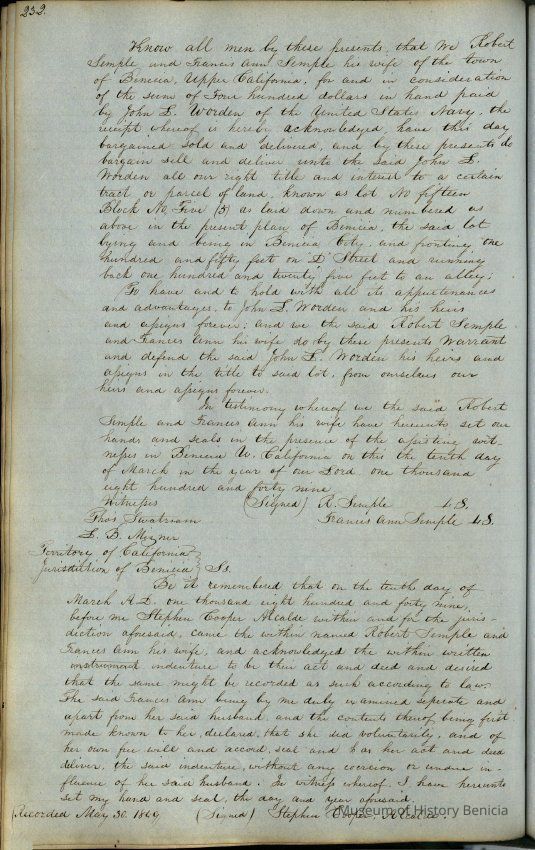 232.
Know all men by these presents, that we Robert
Semple and Frances Ann Semple his wife of the town
of Benicia, Upper California, for and in consideration
of the sum of Four hundred dollars in hand paid
by John L. Worden of the United States Navy, the
receipt whereof is hereby acknowledged, have this day
bargained sold and delivered, and by these presents do
bargain sell and deliver unto the said John L.
Worden all our right title and interest to a certain
tract or parcel of land, known as lot No fifteen
Block No. Five (5) as laid down and numbered as
above in the present plan of Benicia, the said lot
lying and being in Benicia City, and fronting one
hundred and fifty feet on D Street and running
back one hundred and twenty five feet to an alley;
To have and to hold with all its appurtenances
and advantages, to John L. Worden and his heirs
and assigns forever; and we the said Robert Semple
and Frances Ann his wife do by these presents Warrant
and defend the said John L. Worden his heirs and
assigns in the title to said lot, from ourselves our
heirs and assigns forever.
In testimony whereof we the said Robert
Semple and Frances Ann his wife have hereunto set our
hands and seals in the presence of the assisting wit-
nesses in Benicia U. California on this the tenth day
of March in the year of our Lord one thousand
eight hundred and forty nine
Witnesses (Signed) R. Semple L.S.
Thos Swatman Francis Ann Semple L.S.
L. B. Mizner
Territory of California
Jurisdiction of Benicia } Ss.
Be it remembered that on the tenth day of
March A.D. one thousand eight hundred and forty nine,
before me Stephen Cooper Alcalde within and for the juris-
diction aforesaid, came the within named Robert Semple and
Frances Ann his wife, and acknowledged the within written
indenture to be their act and deed and desired
that the same might be recorded as such according to law.
The said Frances Ann being by me duly examined seperate and
apart from her said husband, and the contents thereof being first
made known to her, declared, that she did voluntarily, and of
her own free will and accord, seal and as her act and deed
deliver, the said indenture, without any cocersion or undue in
fluence of her said husband. In witness whereof, I have hereunto
set my hand and seal, the day and year aforesaid.
(Recorded May 30. 1849 (Signed) Stephen Cooper, Alcalde.
Museum of History Benicia